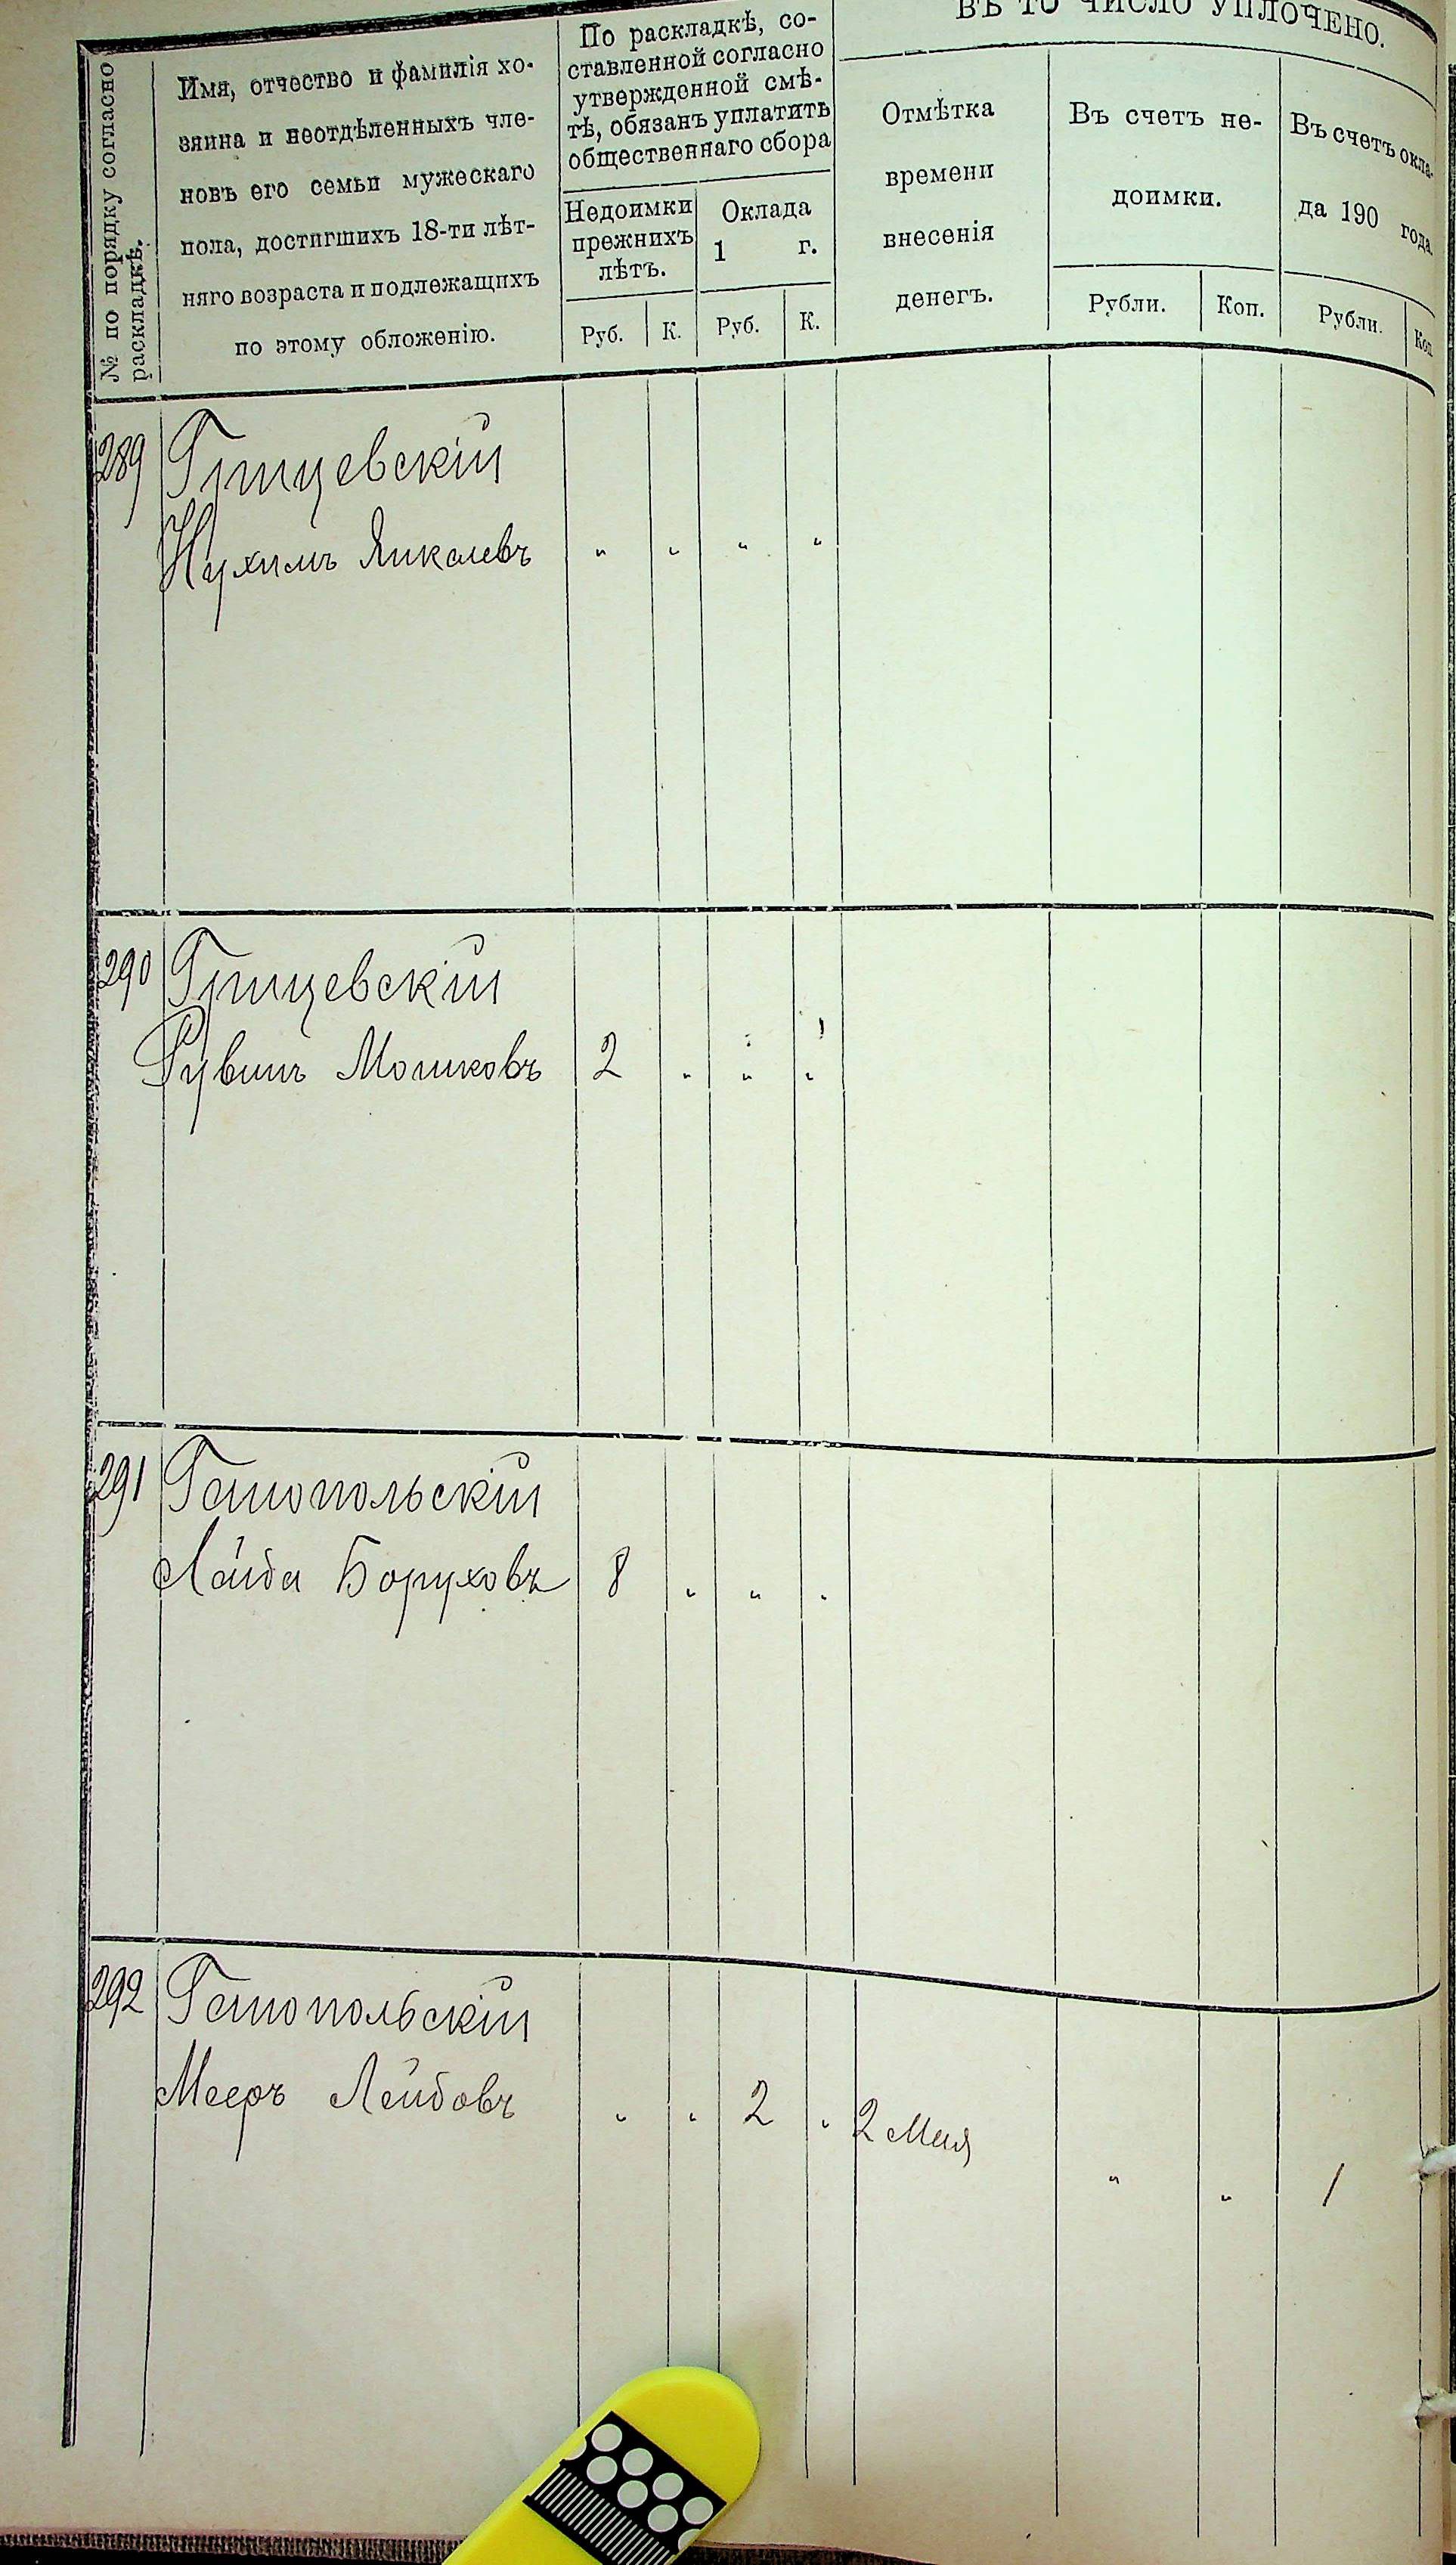 № по порядку согласно
раскладкѣ.
Имя, отчество и фамилія хо-
зяина и неотдѣленныхъ чле-
новъ его семьи мужескаго
пола, достигшихъ 18-ти лѣт-
няго возраста и подлежащихъ
по этому обложенію.
По раскладкѣ, со-
ставленной согласно
утвержденной смѣ-
тѣ, обязанъ уплатить
общественнаго сбора
Недоимки
прежнихъ
лѣтъ.
Руб. К.
Оклада
1 г.
Руб. К.
ВЪ ТО ЧИСЛО УПЛОЧЕНО.
Отмѣтка
времени
внесенія
денегъ.
Въ счетъ не-
доимки.
Рубли. Коп.
Въ счетъ окла-
да 190 года
Рубли. Коп
289 Грицевскій
Нухимъ Янкелевъ " " " "
290 Грицевскій
Рувинъ Мошковъ 2 " " "
291 Ганопольскій
Лейба Боруховъ 8 " " "
292 Ганопольскій
Мееръ Лейбовъ " " 2 " 2 Мая
" " 1